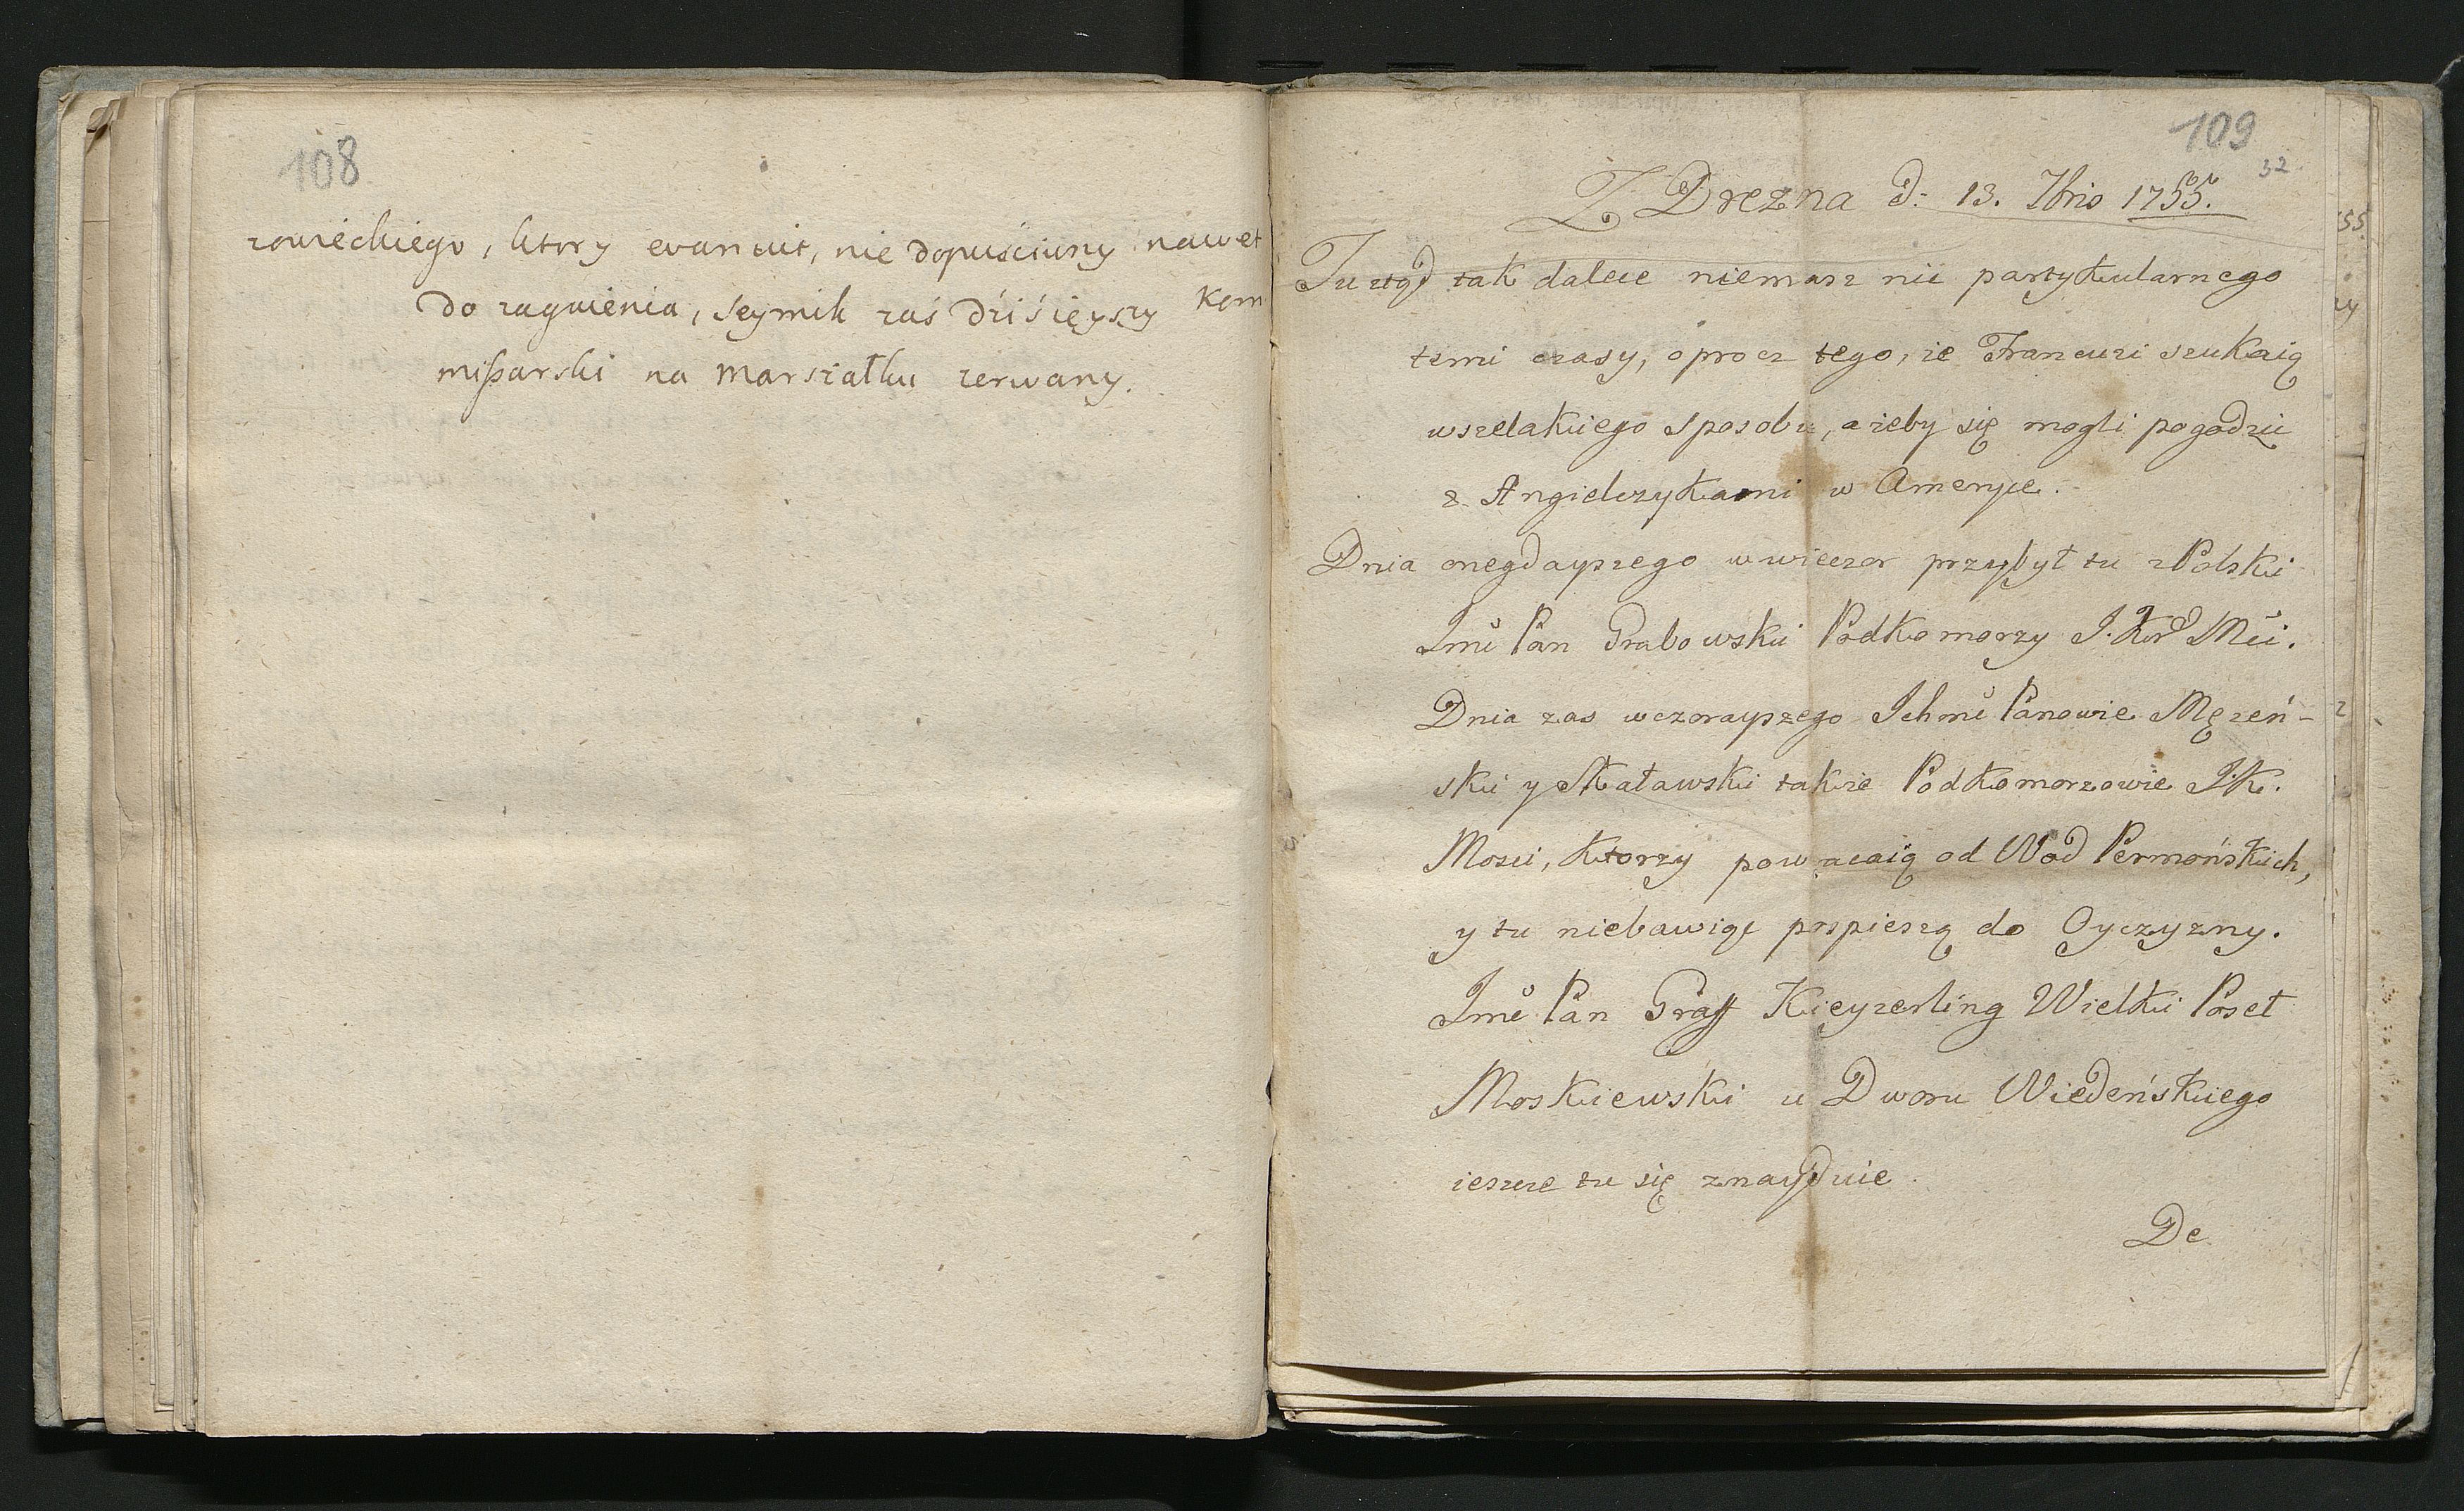 108
zowieckiego, ktory evanuit, nie dopuściwny nawet
do zagaienia, Seymik zaś dźiśięyszy Kom
mißarski na marszałku zerwany.
109
32
Z Drezna d: 13. 7bris 1755.
Tu ztąd tak dalece niemasz nic partykularnego
temi czasy, oprocz tego, że Francuzi szukaią
wszelakiego sposobu, ażeby się mogli pogodzic
z Angielczykami w Ameryce.
Dnia onegdayszego w wieczor przybył tu z Polski
Jmć Pan Grabowski Podkomorzy J. Kr Mći.
Dnia zas wczorayszego Ichmć Panowie Męzeń-
ski y Skaławski takze Podkomorzowie J.K.
Mosci, Ktorzy powracaią od Wod Permońskich,
y tu niebawiąc pospieszą do Oyczyzny.
Jmć Pan Graff Kieyzerling Wielki Poseł
Moskiewski u Dworu Wiedeńskiego
ieszcze tu się znayduie.
De